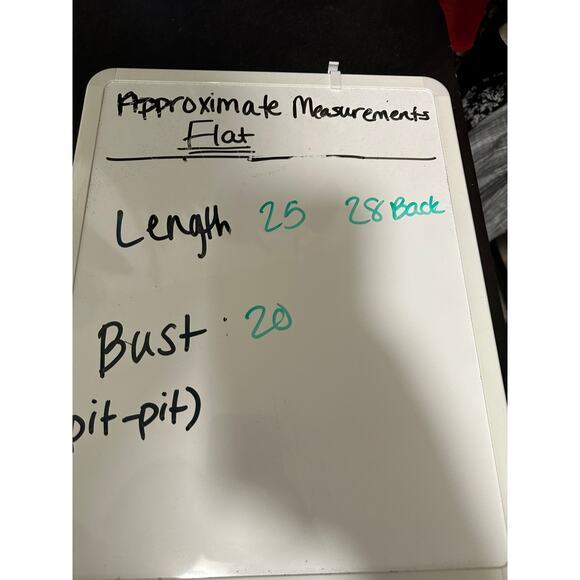 Approximate Measurements
Flat
Length 25 28 Back
Bust : 20
pit-pit)